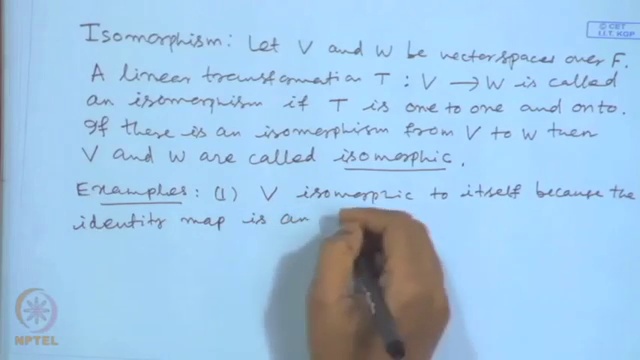 © CET
I.I.T. KGP
Isomorphism: Let V and W be vector spaces over F.
A linear transformation T : V → W is called
an isomorphism if T is one to one and onto.
If there is an isomorphism from V to W then
V and W are called isomorphic.
Examples: (1) V isomorphic to itself because the
identity map is an
NPTEL